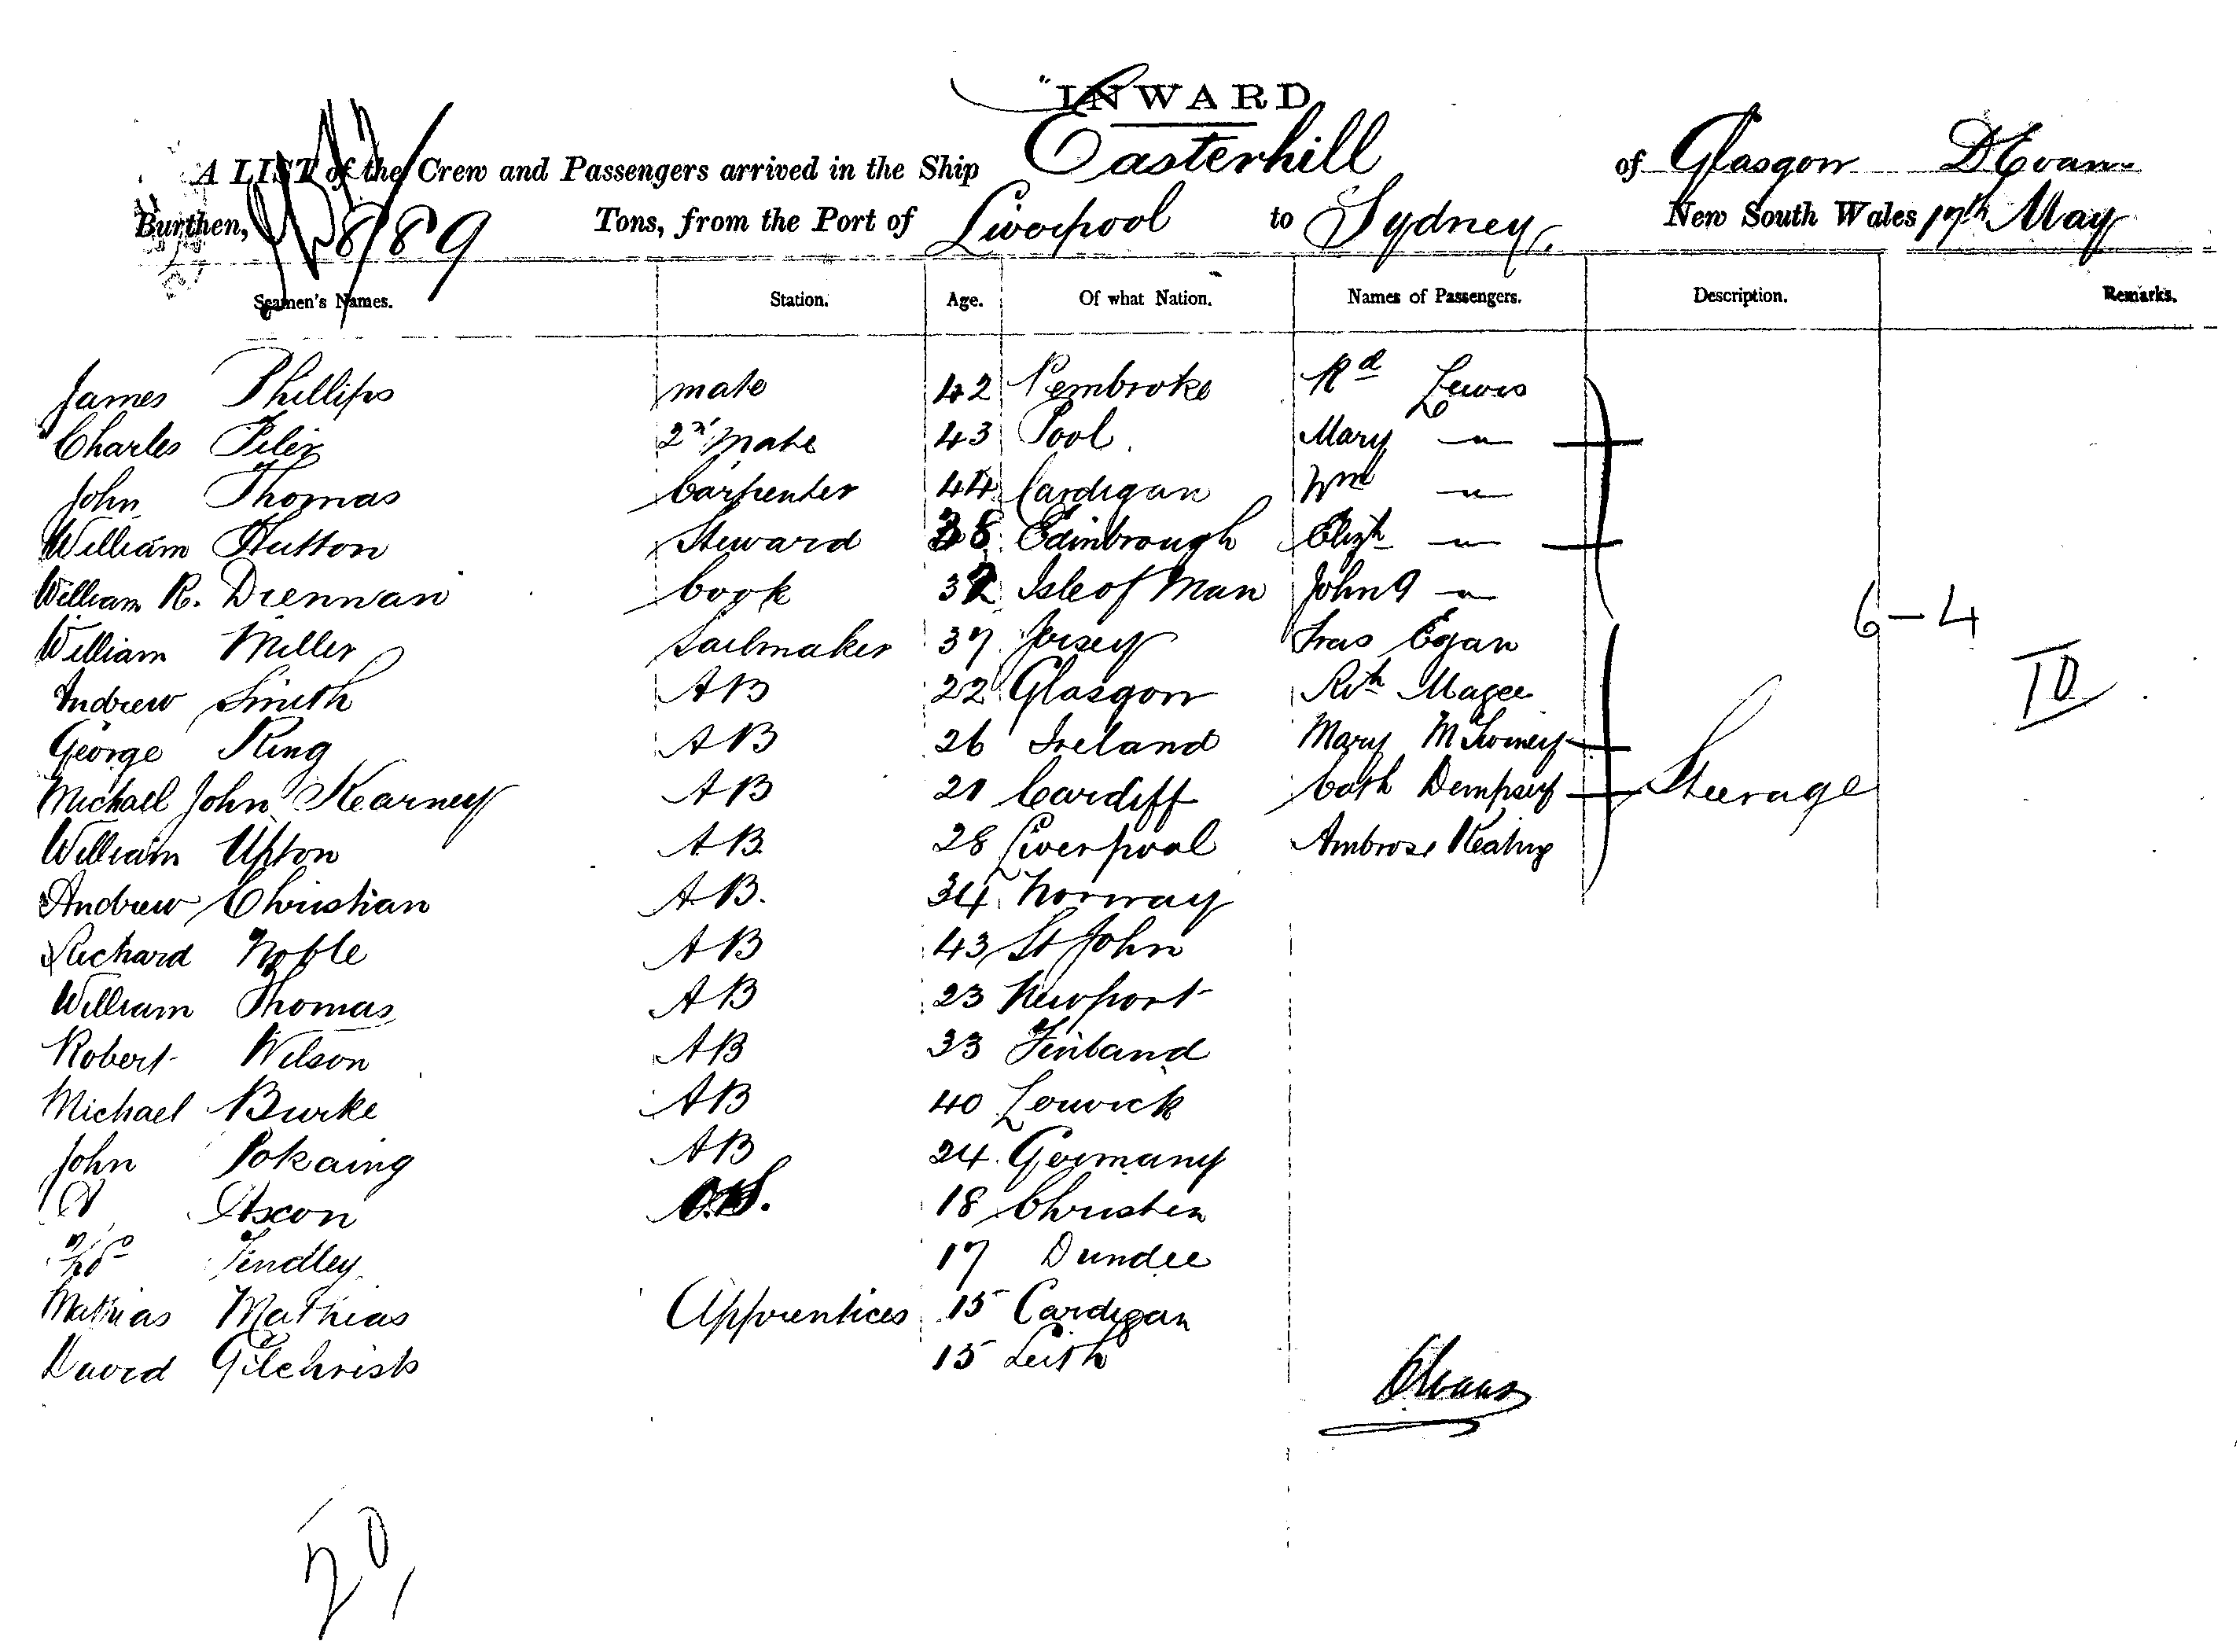 INWARD
A LIST of the Crew and Passengers arrived in the Ship Easterhill of Glasgow D Evans
Burthen, 889 Tons, from the Port of Liverpool to Sydney, New South Wales 17th May
Seamen's Names. Station. Age. Of what Nation. Names of Passengers. Description. Remarks.
James Phillips mate 42 Pembroke Rd Lewis
Charles 2nd Mate 43 Pool. Mary — " —
John Thomas Carpenter 44 Cardigan Wm — " —
William Hutton Steward 38 Edinbrough Elizh — " —
William R. Drennan Cook 32 Isle of Man John — " —
William Miller Sailmaker 37 Jersey Fras Egan
Andrew Smith AB 22 Glasgow Magee
George King AB 26 Ireland Mary
Michael John Kearney AB 21 Cardiff Cath Dempsey Steerage
William Upton A.B. 28 Liverpool Ambrose Keating
Andrew Christian A.B. 34 Norway
Richard Noble AB 43 St John
William Thomas AB 23 Newport
Robert Wilson AB 33 Finland
Michael Burke AB 40 Lerwick
John Pokaing AB 24 Germany
Axon O.S. 18
Findley 17 Dundee
Mathias Mathias Apprentices 15 Cardigan
David Gilchrist 15 Leith
6-4
10
D Evans
20